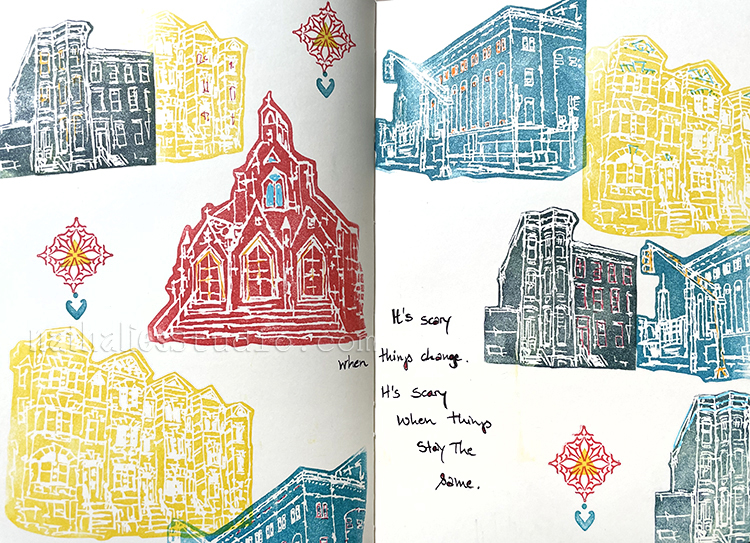 It's scary
when things change.
It's scary
When things
Stay The
Same.
nathaliesstudio.com